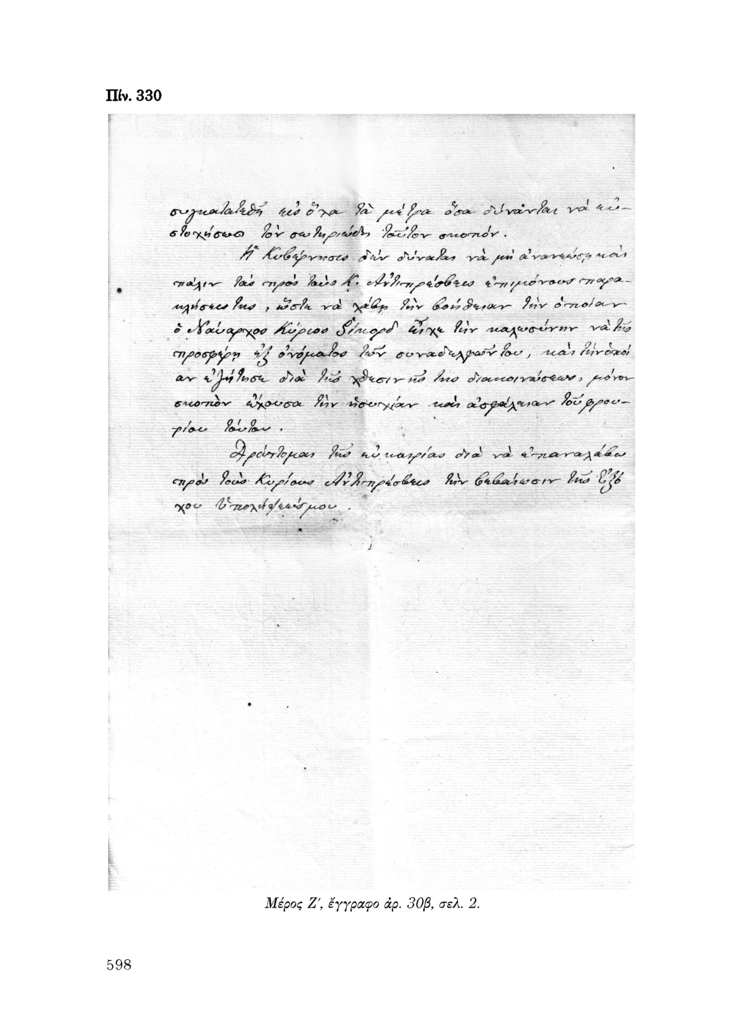 Πίν. 330
συγκατατεθῇ εἰς ὅλα τὰ μέτρα ὅσα δύνανται νὰ εὐ-
στοχήσωσι τὸν σωτηριώδη τοῦτον σκοπόν.
Ἡ Κυβέρνησις δὲν δύναται νὰ μὴ ἀνανεώσῃ καὶ
πάλιν τὰς πρὸς τοὺς Κ. Ἀντιπρέσβεις ἐπιμόνους παρα-
κλήσεις της, ὥστε νὰ λάβῃ τὴν βοήθειαν τὴν ὁποίαν
ὁ Ναύαρχος Κύριος Ῥίκορδ εἶχε τὴν καλωσύνην νὰ τῆς
προσφέρῃ ἐξ ὀνόματος τῶν συναδελφῶν του, καὶ τὴν ὁποί
αν ἐζήτησε διὰ τῆς χθεσινῆς της διακοινώσεως, μόνον
σκοπὸν ἔχουσα τὴν ἡσυχίαν καὶ ἀσφάλειαν τοῦ φρου-
ρίου τούτου.
Δράττομαι τῆς εὐκαιρίας διὰ νὰ ἐπαναλάβω
πρὸς τοὺς Κυρίους Ἀντιπρέσβεις τὴν βεβαίωσιν τῆς Ἐξό
χου Ὑπολήψεώς μου.
Μέρος Ζ′, ἔγγραφο ἀρ. 30β, σελ. 2.
598